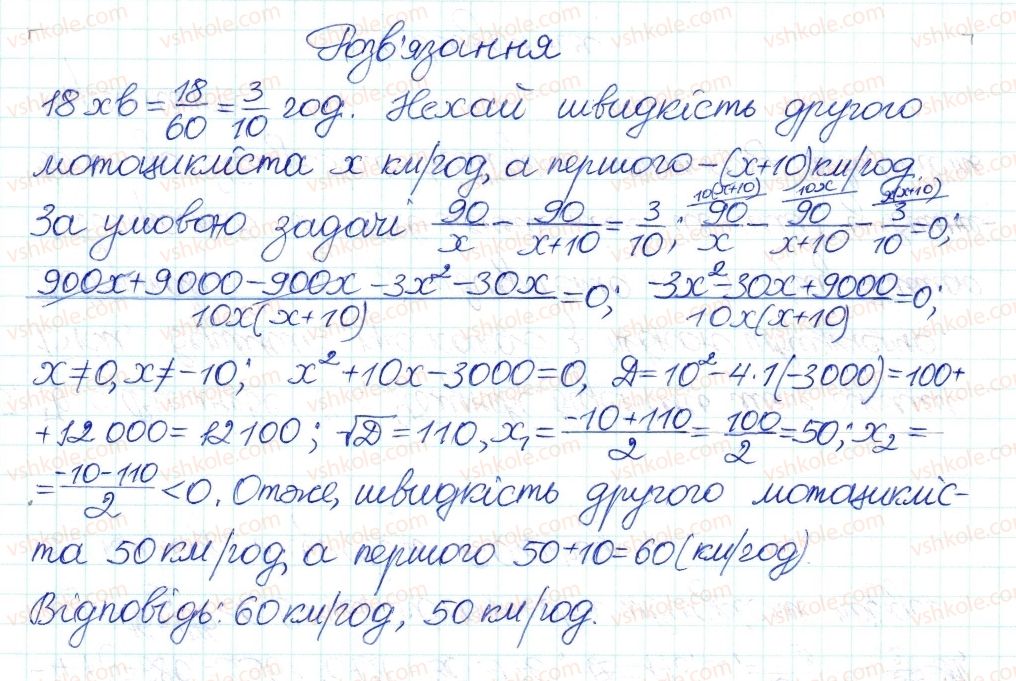 Розв'язання
18 хв = 18/60 = 3/10 год. Нехай швидкість другого
мотоцикліста x км/год, а першого – (x+10) км/год.
За умовою задачі 90/x – 90/(x+10) = 3/10; 10(x+10) 90/x – 10x 90/(x+10) – x(x+10) 3/10 = 0;
(900x+9000–900x–3x²–30x)/(10x(x+10)) = 0; (–3x²–30x+9000)/(10x(x+10)) = 0;
x≠0, x≠–10; x²+10x–3000=0, Д=10²–4·1(–3000)=100+
+12 000=12100; √Д=110, x₁=(–10+110)/2=100/2=50; x₂=
=(–10–110)/2<0. Отже, швидкість другого мотоцикліс-
та 50 км/год, а першого 50+10=60 (км/год).
Відповідь: 60 км/год, 50 км/год.